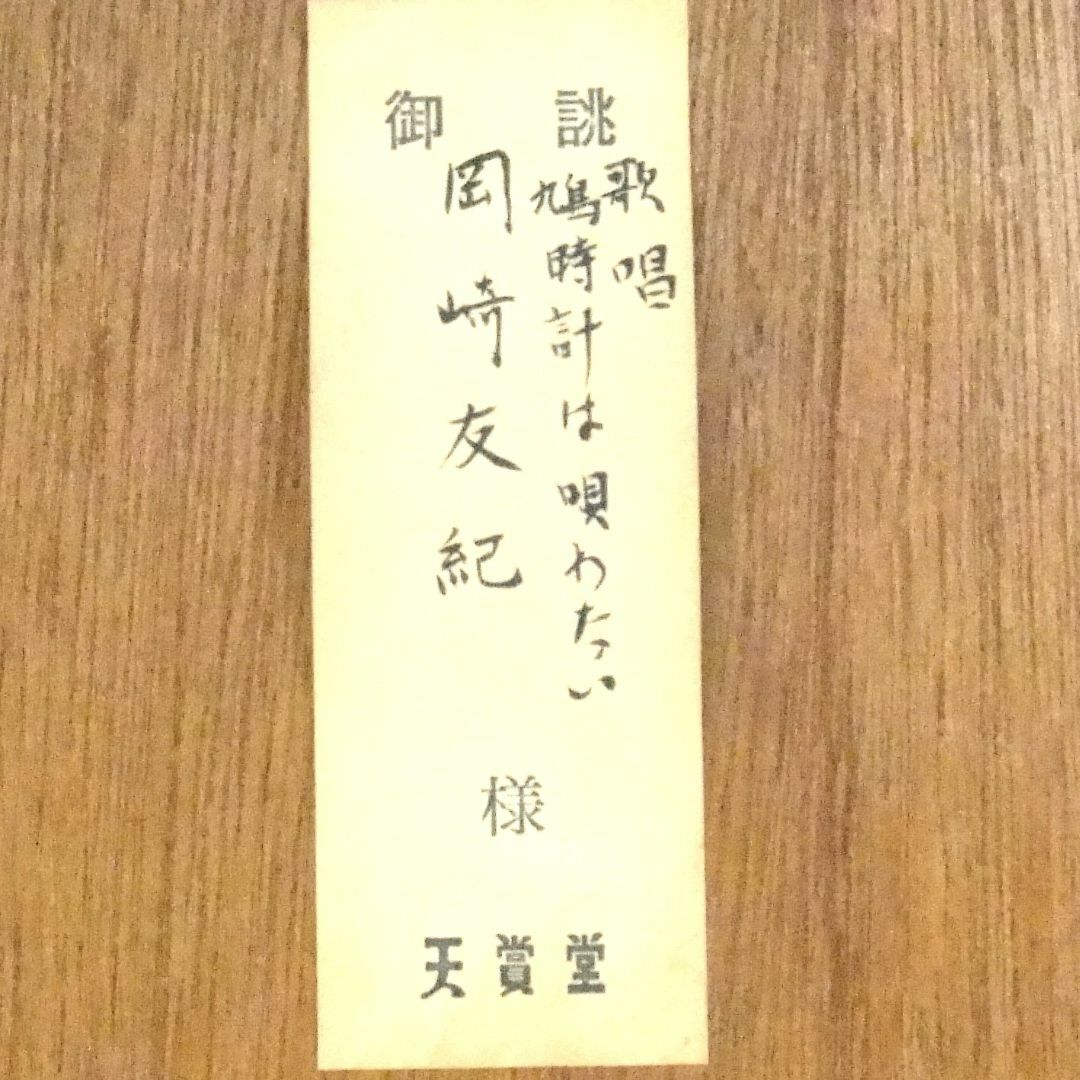 御 誂
歌唱
鳩時計は唄わたい
岡崎友紀
様
天賞堂